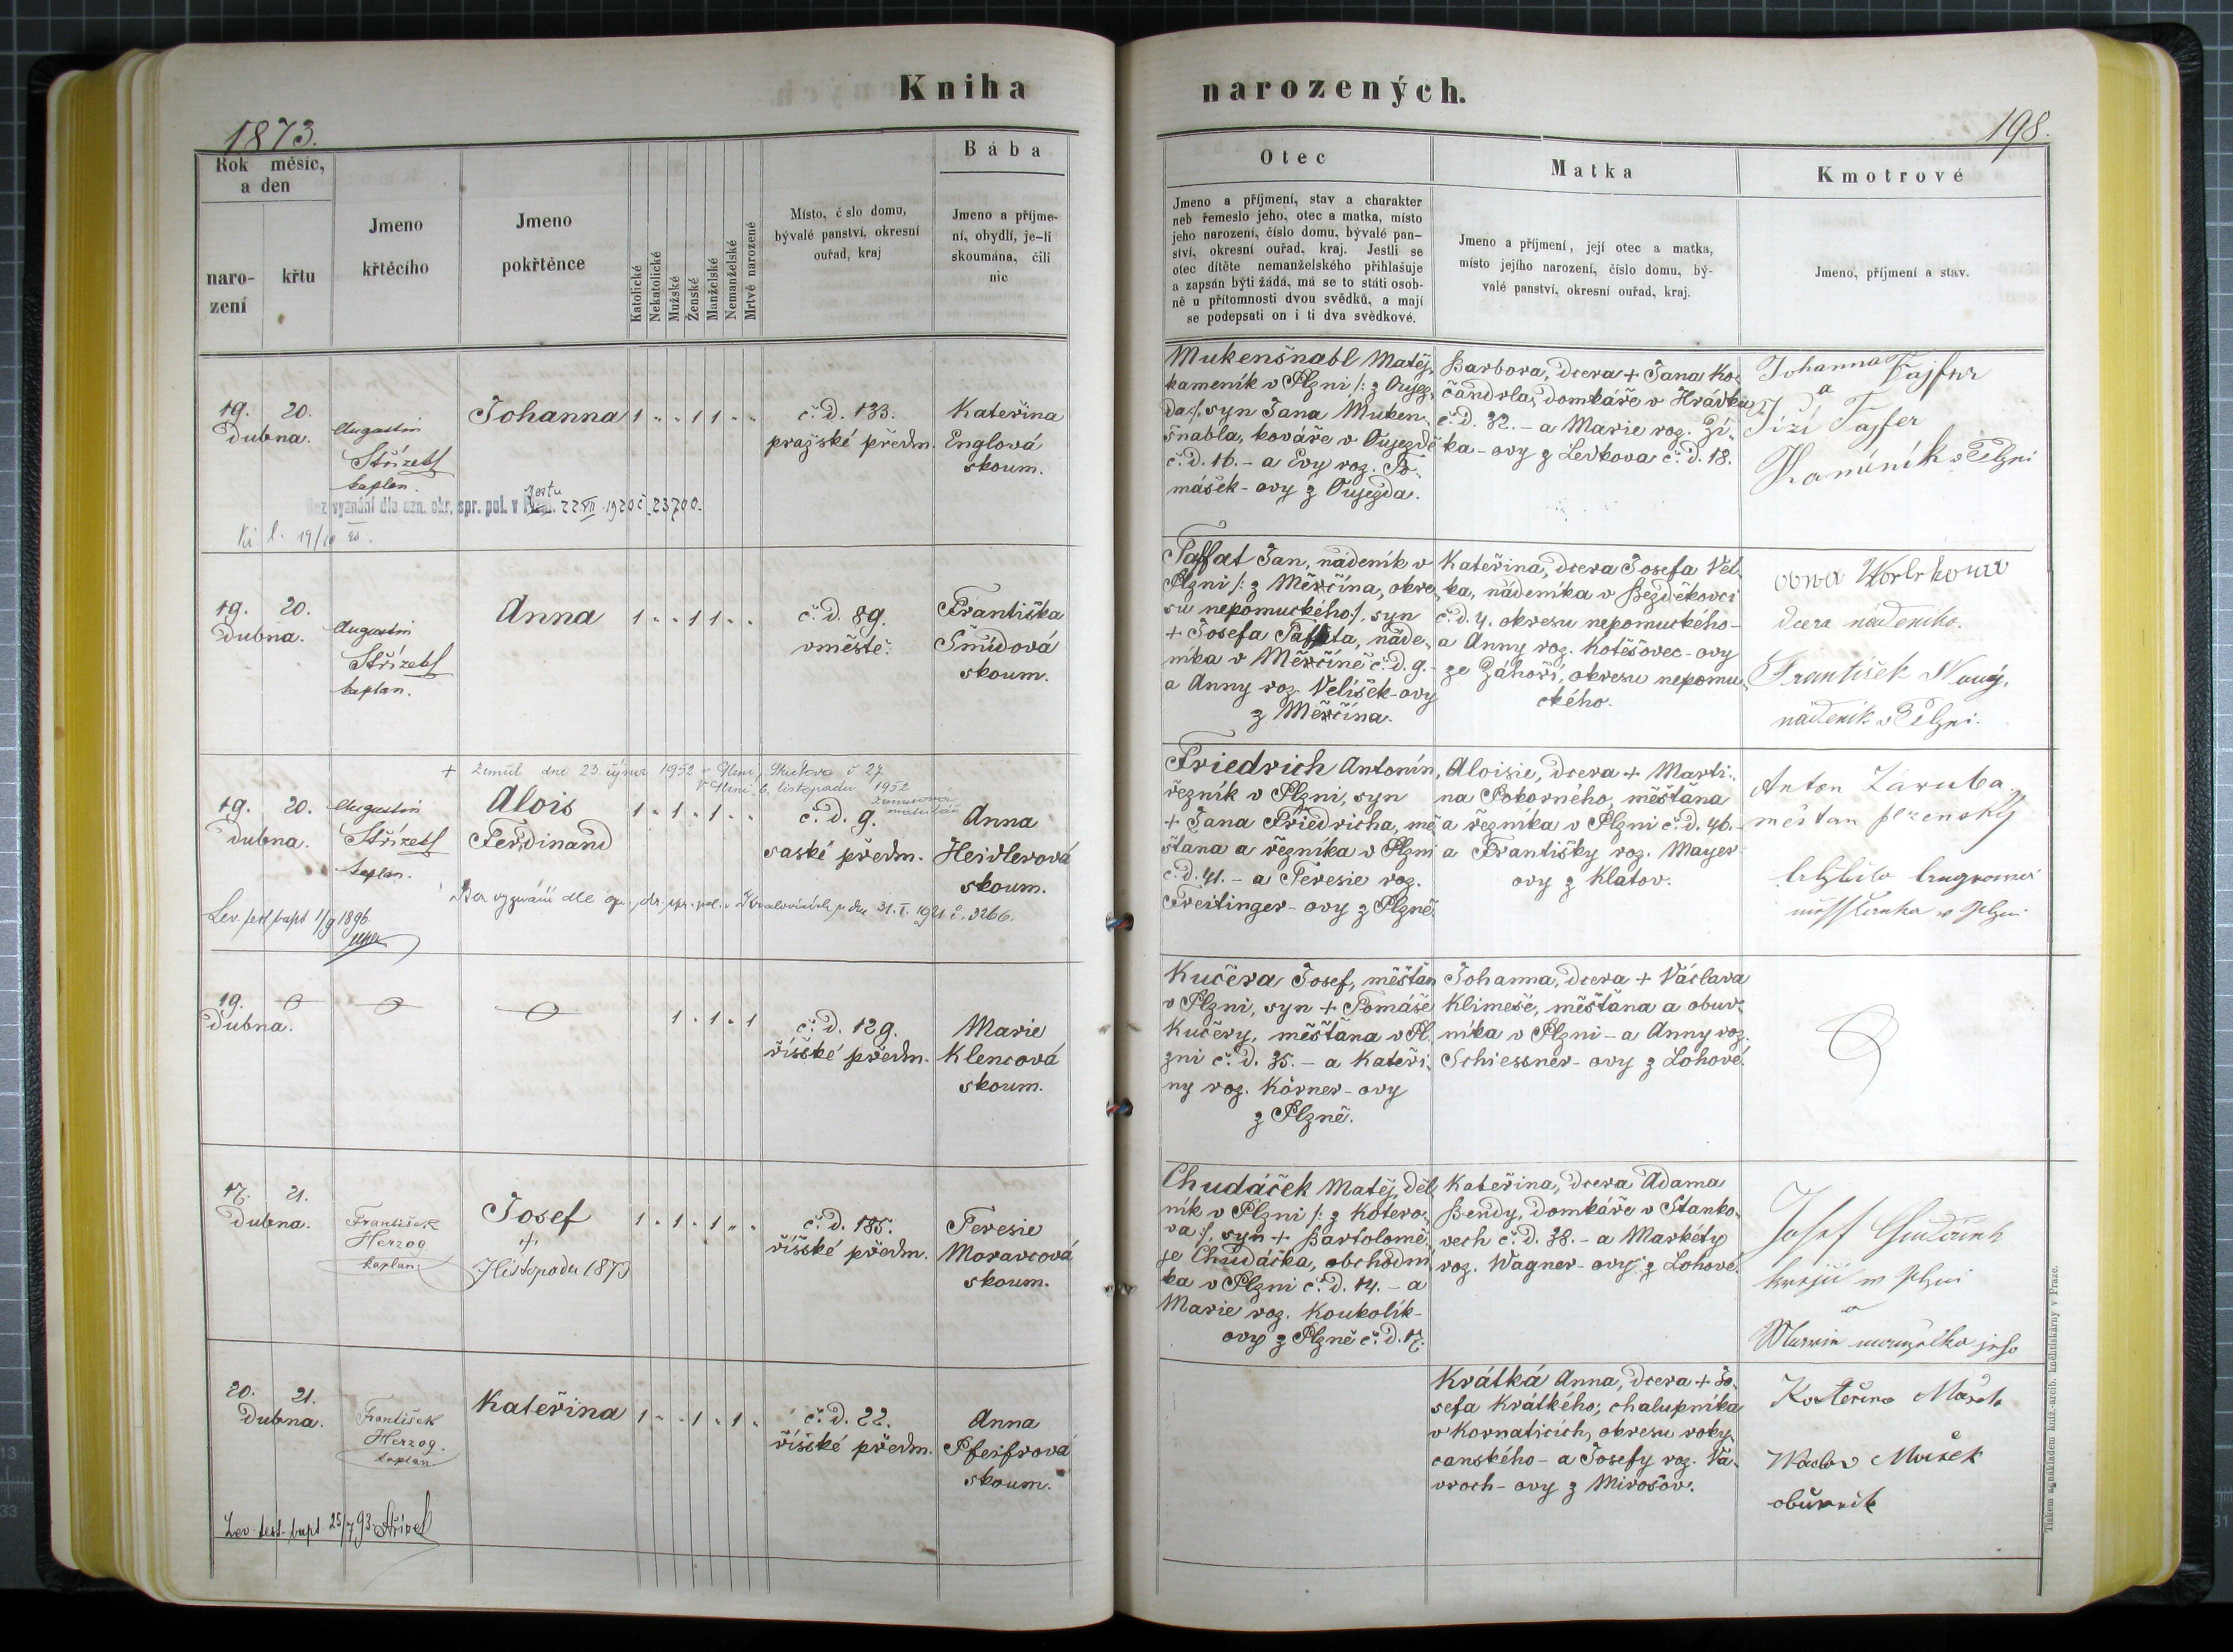 Kniha
narozených.
1873.
198.
Rok měsíc,
a den
naro-
zení
křtu
Jmeno
křtěcího
Jmeno
pokřtěnce
Katolické
Nekatolické
Mužské
Ženské
Manželské
Nemanželské
Mrtvě narozené
Místo, číslo domu,
bývalé panství, okresní
ouřad, kraj
Bába
Jmeno a příjme-
ní, obydlí, je-li
skoumána, čili
nic
Otec
Jmeno a příjmení, stav a charakter
neb řemeslo jeho, otec a matka, místo
jeho narození, číslo domu, bývalé pan-
ství, okresní ouřad, kraj. Jestli se
otec dítěte nemanželského přihlašuje
a zapsán býti žádá, má se to státi osob-
ně u přítomnosti dvou svědků, a mají
se podepsati on i ti dva svědkové.
Matka
Jmeno a příjmení, její otec a matka,
místo jejího narození, číslo domu, bý-
valé panství, okresní ouřad, kraj.
Kmotrové
Jmeno, příjmení a stav.
19. 20.
Dubna.
Augustin
Střízek
kaplan.
Johanna
1 " " 1 1 " "
č. d. 133.
pražské předm.
Kateřina
Englová
skoum.
Bez vyznání dle ozn. okr. spr. pol. v 22 VII 1920 č. 23700.
Mukenšnabl Matěj,
kameník v Plzni /: z Oujez-
da :/, syn Jana Muken-
šnabla, kováře v Oujezdě
č. d. 16. - a Evy roz. To-
mášek-ovy z Oujezda.
Barbora, dcera + Jana Ko-
čandrla, domkáře v Hrádku
č. d. 32. - a Marie roz. Zí-
ka-ovy z Levkova č. d. 18.
Johanna Tajfer
a
Jiří Tajfer
Kameník v Plzni
19. 20.
Dubna.
Augustin
Střízek
kaplan.
Anna
1 " " 1 1 " "
č. d. 89.
v městě.
Františka
Šmídová
skoum.
Taffat Jan, nádeník v
Plzni /: z Měrčína, okre-
su nepomuckého :/, syn
+ Josefa Taffata, náde-
níka v Měrčíně č. d. 9. -
a Anny roz. Velíšek-ovy
z Měrčína.
Kateřina, dcera Josefa Vel-
ka, nádeníka v Bezděkovci
č. d. 4. okresu nepomuckého -
a Anny roz. Kotěšovec-ovy
ze Záhoří, okresu nepomu-
ckého.
dcera nádeníka.
František Nový,
nádeník v Plzni.
+ Zemřel dne 23. října 1952 v Plzni, Skutova č 27
V Plzni 6. listopadu 1952
19. 20.
Dubna.
Augustin
Střízek
kaplan.
Alois
Ferdinand
1 " 1 " 1 " "
č. d. 9.
saské předm.
Anna
Heidlerová
skoum.
Bez vyznání dle ozn. okr. spr. pol. v Kralovicích z dne 31. I. 1921 č. 3266.
Lev. test. bapt 1/9 1896
Friedrich Antonín,
řezník v Plzni, syn
+ Jana Friedricha, mě-
šťana a řezníka v Plzni
č. d. 41. - a Teresie roz.
Freitinger-ovy z Plzně.
Aloisie, dcera + Marti-
na Pokorného, měšťana
a řezníka v Plzni č. d. 46. -
a Františky roz. Mayer-
ovy z Klatov.
Anton Záruba
měštan plzenský
v Plzni
19.
Dubna.
1 " 1 " 1
č. d. 129.
říšské předm.
Marie
Klencová
skoum.
Kučera Josef, měšťan
v Plzni, syn + Tomáše
Kučery, měšťana v Pl-
zni č. d. 35. - a Kateři-
ny roz. Körner-ovy
z Plzně.
Johanna, dcera + Václava
Klimeše, měšťana a obuv-
níka v Plzni - a Anny roz.
Schiessner-ovy z Lohové.
17. 21.
Dubna.
František
Herzog
kaplan.
Josef
+
listopadu 1873
1 " 1 " 1 " "
č. d. 185.
říšské předm.
Teresie
Moravcová
skoum.
Chudáček Matěj, děl-
ník v Plzni /: z Kotero-
va :/, syn + Bartolomě-
je Chudáčka, obchodní-
ka v Plzni č. d. 14. - a
Marie roz. Koukolík-
ovy z Plzně č. d. 17.
Kateřina, dcera Adama
Bendy, domkáře v Stanko-
vech č. d. 38. - a Markéty
roz. Wagner-ovy z Lohové.
Josef
krejčí w Plzni
a
manželka jeho
20. 21.
Dubna.
František
Herzog.
kaplan
Kateřina
1 " " 1 " 1 "
č. d. 22.
říšské předm.
Anna
Pfeifrová
skoum.
Lev. test. bapt. 25/7 93. Střízek
Krátká Anna, dcera + Jo-
sefa Krátkého, chalupníka
v Kornaticích, okresu roky-
canského - a Josefy roz. Va-
vroch-ovy z Mirošov.
Kateřina
Mašek
obuvník
Tiskem a nákladem kníž.-arcib. knihtiskárny v Praze.